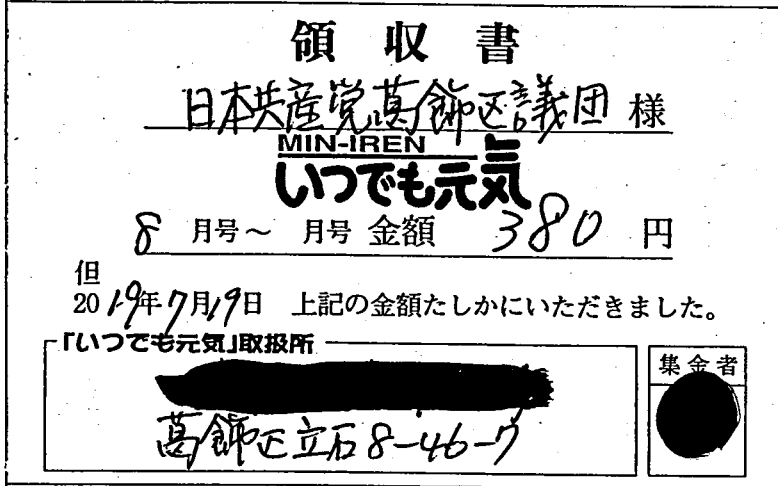 領収書
日本共産党葛飾区議団 様
MIN-IREN
いつでも元気
8 月号～ 月号 金額 380 円
但
2019年7月19日 上記の金額たしかにいただきました。
「いつでも元気」取扱所
葛飾区立石8-46-7
集金者